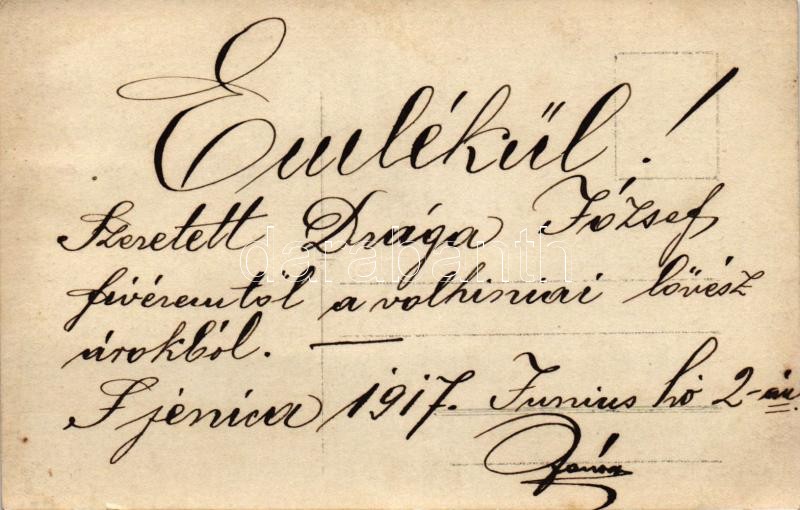 Emlékül!
Szeretett Drága József
fivéremtől a volhiniai lövész
árokból. —
Sjenica 1917. Junius hó 2-án.
darabanth